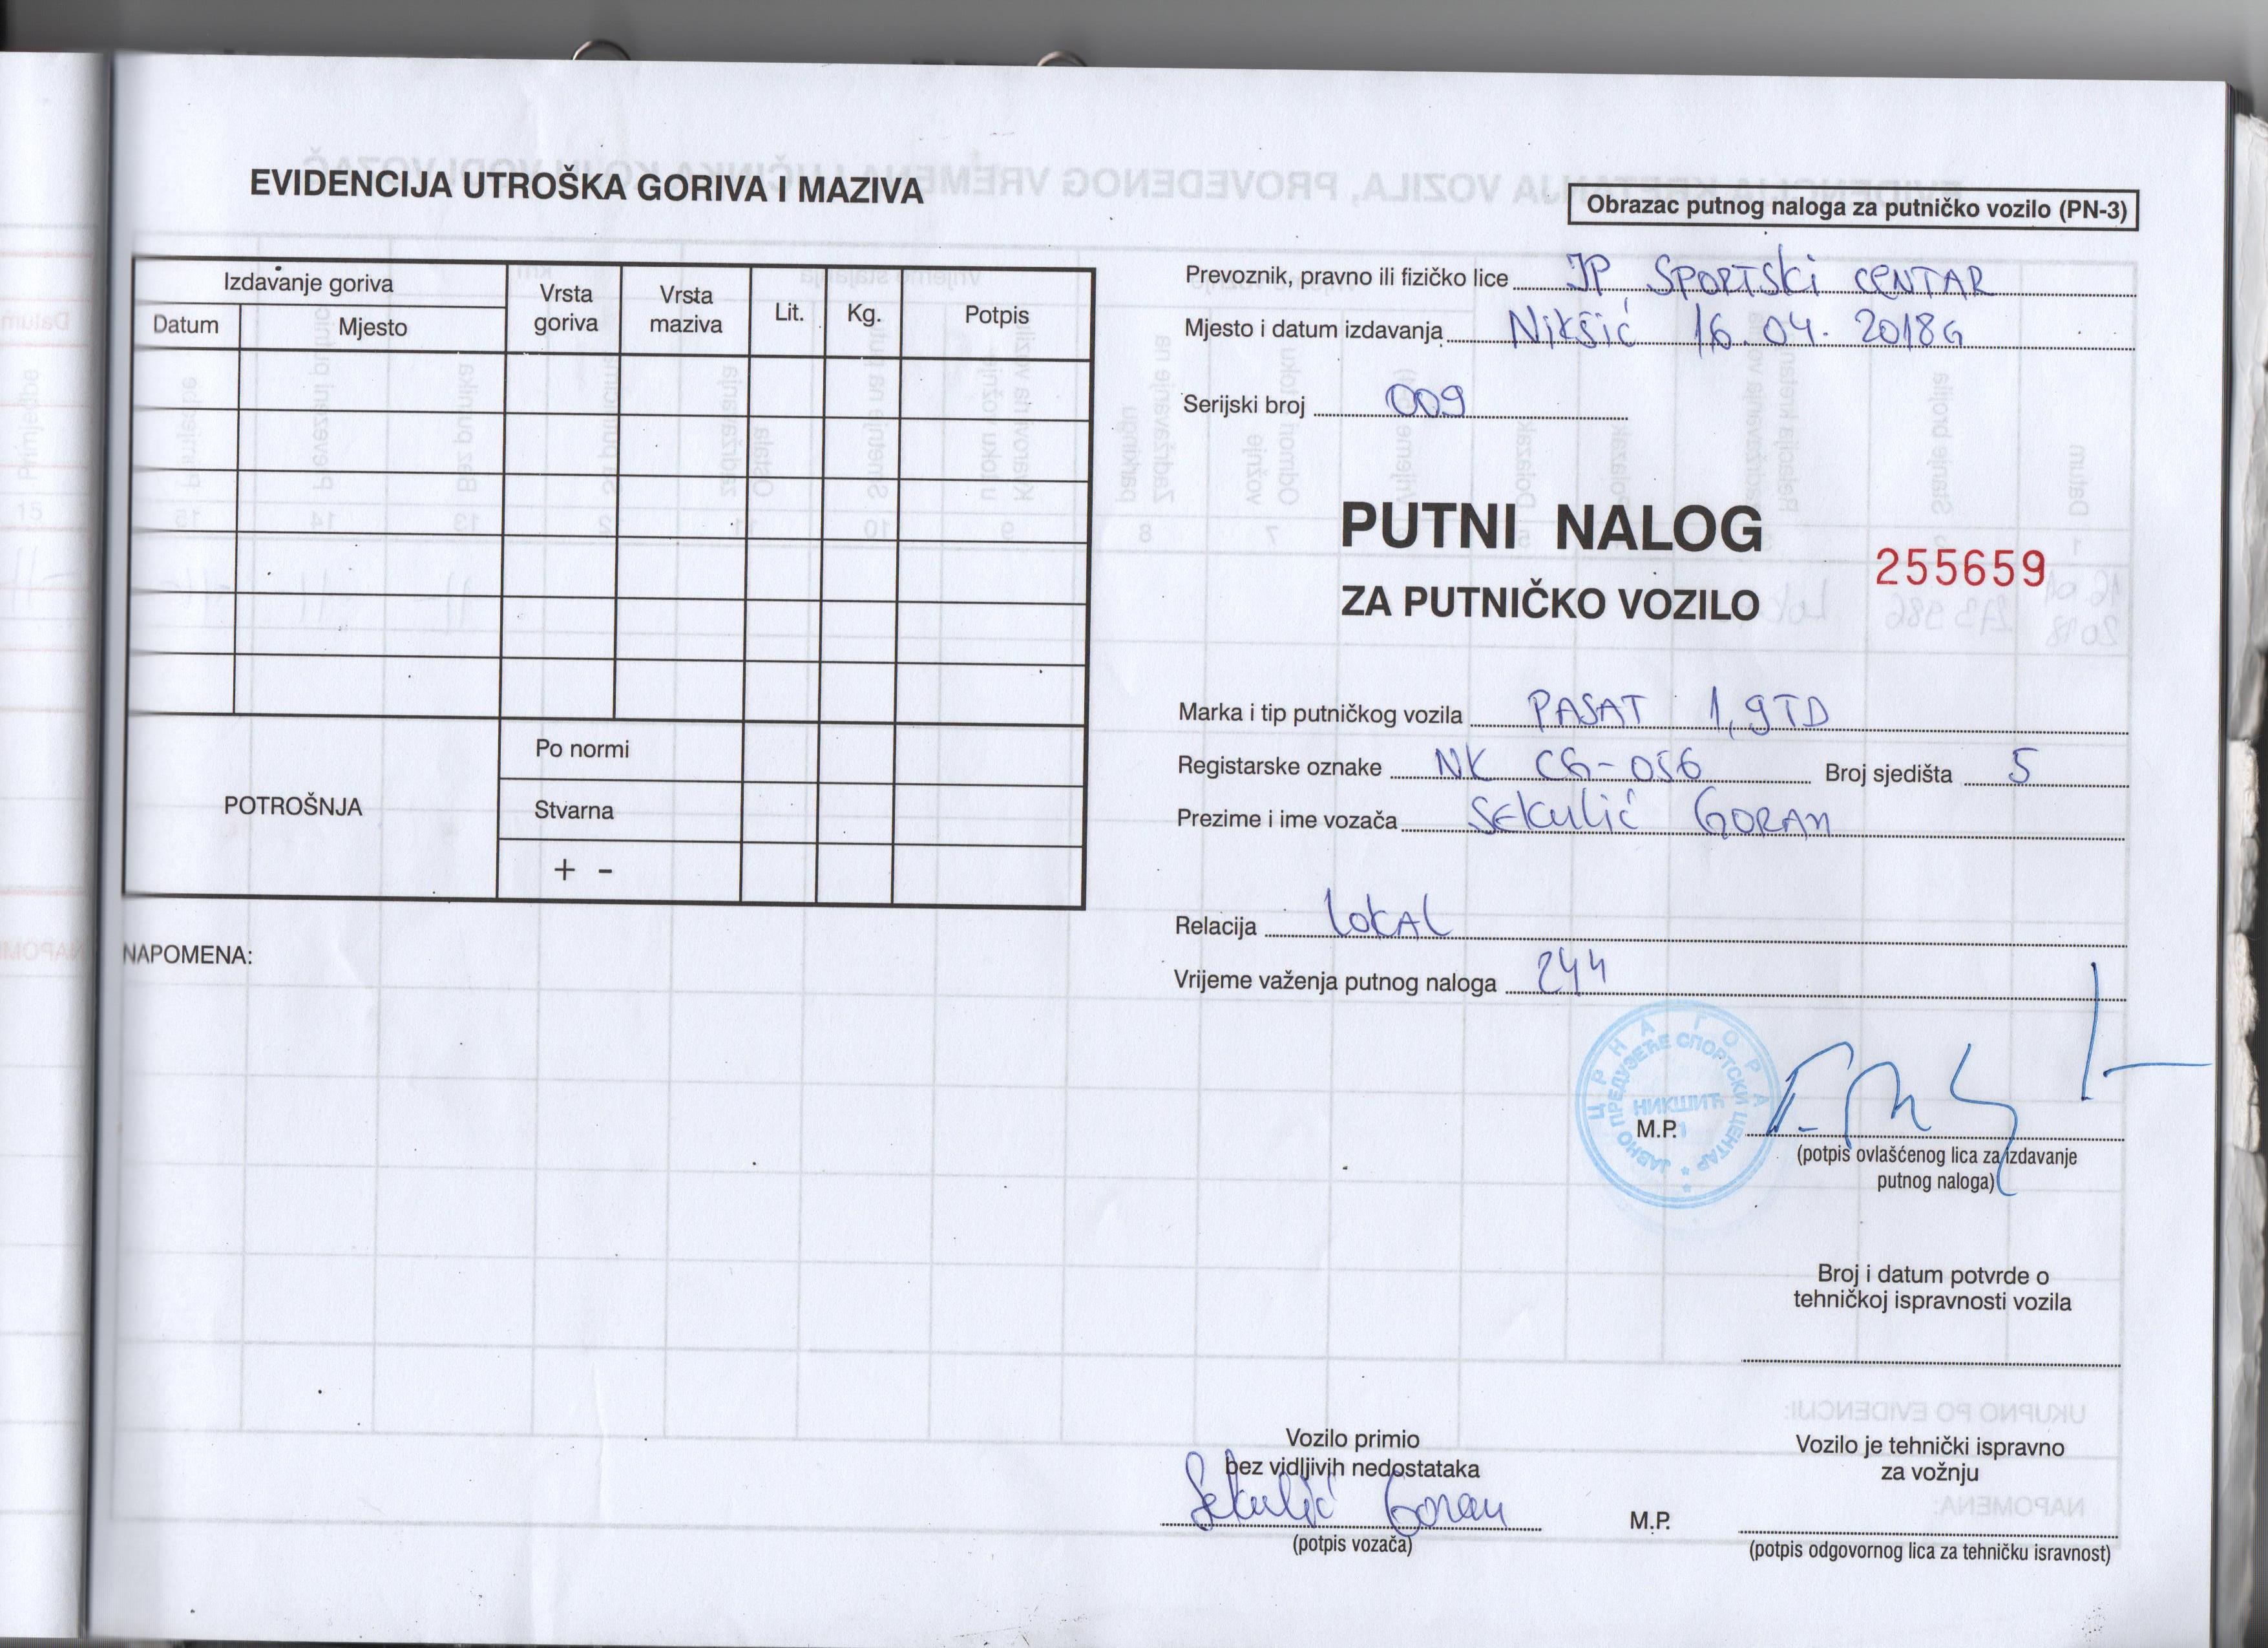 EVIDENCIJA UTROŠKA GORIVA I MAZIVA
Izdavanje goriva
Datum
Mjesto
Vrsta goriva
Vrsta maziva
Lit.
Kg.
Potpis
POTROŠNJA
Po normi
Stvarna
+ -
NAPOMENA:
Obrazac putnog naloga za putničko vozilo (PN-3)
Prevoznik, pravno ili fizičko lice JP SPORTSKI CENTAR
Mjesto i datum izdavanja Nikšić 16.04.2018G
Serijski broj 009
PUTNI NALOG
255659
ZA PUTNIČKO VOZILO
Marka i tip putničkog vozila PASAT 1,9TD
Registarske oznake NK CG-056 Broj sjedišta 5
Prezime i ime vozača SEKULIĆ GORAN
Relacija LOKAL
Vrijeme važenja putnog naloga 24h
ЦРНА ГОРА
ЈАВНО ПРЕДУЗЕЋЕ СПОРТСКИ ЦЕНТАР
НИКШИЋ
1
M.P.
(potpis ovlašćenog lica za izdavanje
putnog naloga)
Broj i datum potvrde o
tehničkoj ispravnosti vozila
Vozilo primio
bez vidljivih nedostataka
Sekulić Goran
(potpis vozača)
Vozilo je tehnički ispravno
za vožnju
M.P.
(potpis odgovornog lica za tehničku isravnost)